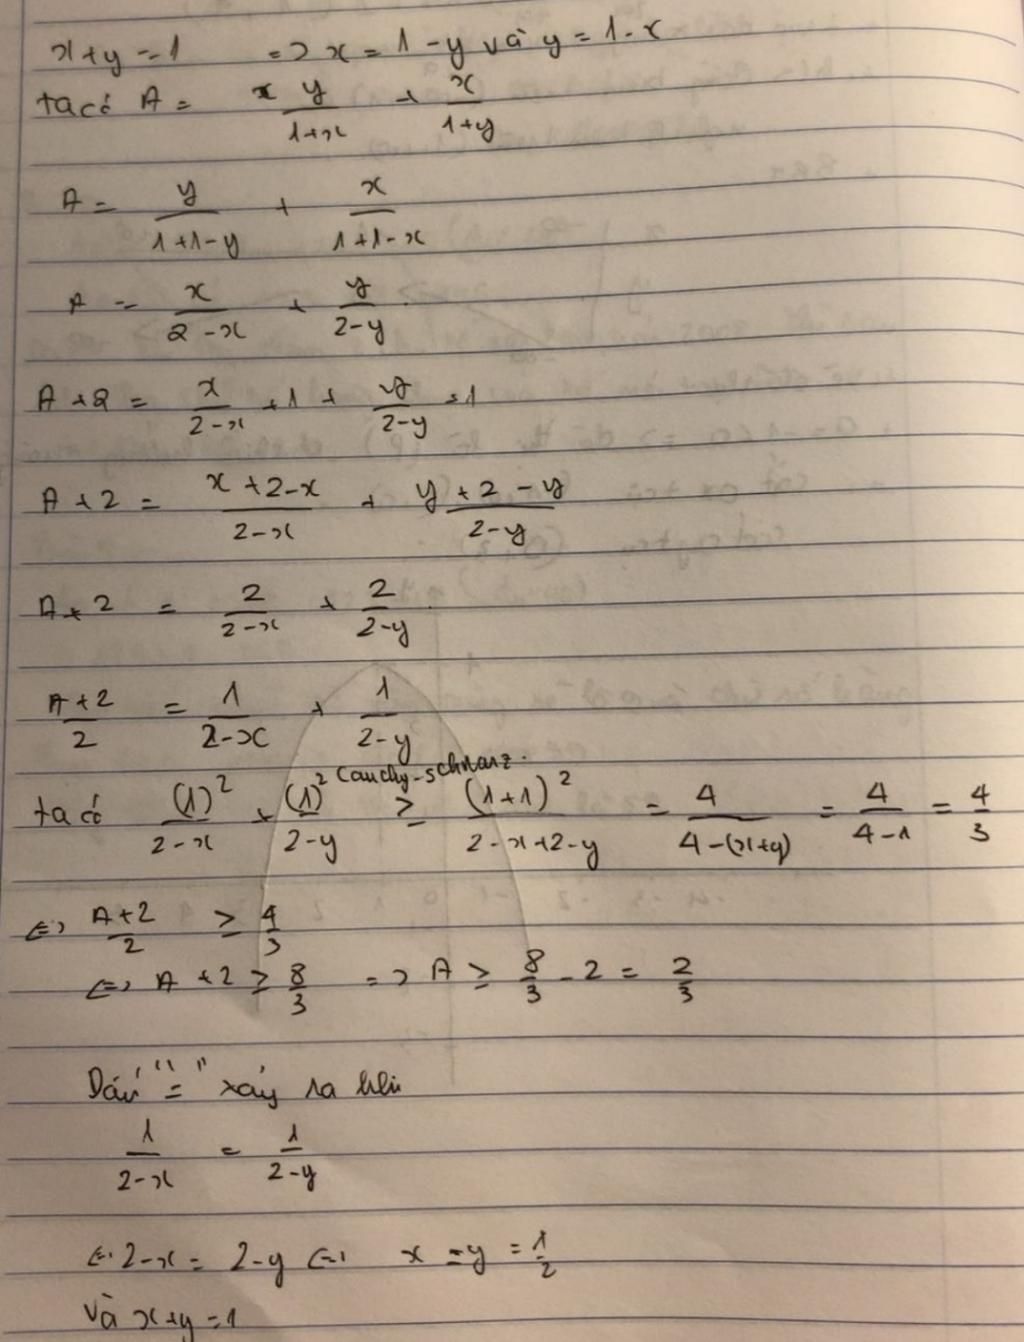 x+y=1 => x = 1-y và y = 1-x
ta có A = y/(1+x) + x/(1+y)
A = y/(1+1-y) + x/(1+1-x)
A = x/(2-x) + y/(2-y)
A+2 = x/(2-x) + 1 + y/(2-y) + 1
A+2 = (x+2-x)/(2-x) + (y+2-y)/(2-y)
A+2 = 2/(2-x) + 2/(2-y)
(A+2)/2 = 1/(2-x) + 1/(2-y)
ta có (1)²/(2-x) + (1)²/(2-y) ≥ Cauchy-schwarz (1+1)²/(2-x+2-y) = 4/(4-(x+y)) = 4/(4-1) = 4/3
<=> (A+2)/2 ≥ 4/3
<=> A+2 ≥ 8/3 => A ≥ 8/3 - 2 = 2/3
Dấu "=" xảy ra khi
1/(2-x) = 1/(2-y)
<=> 2-x = 2-y <=> x = y = 1/2
và x+y=1